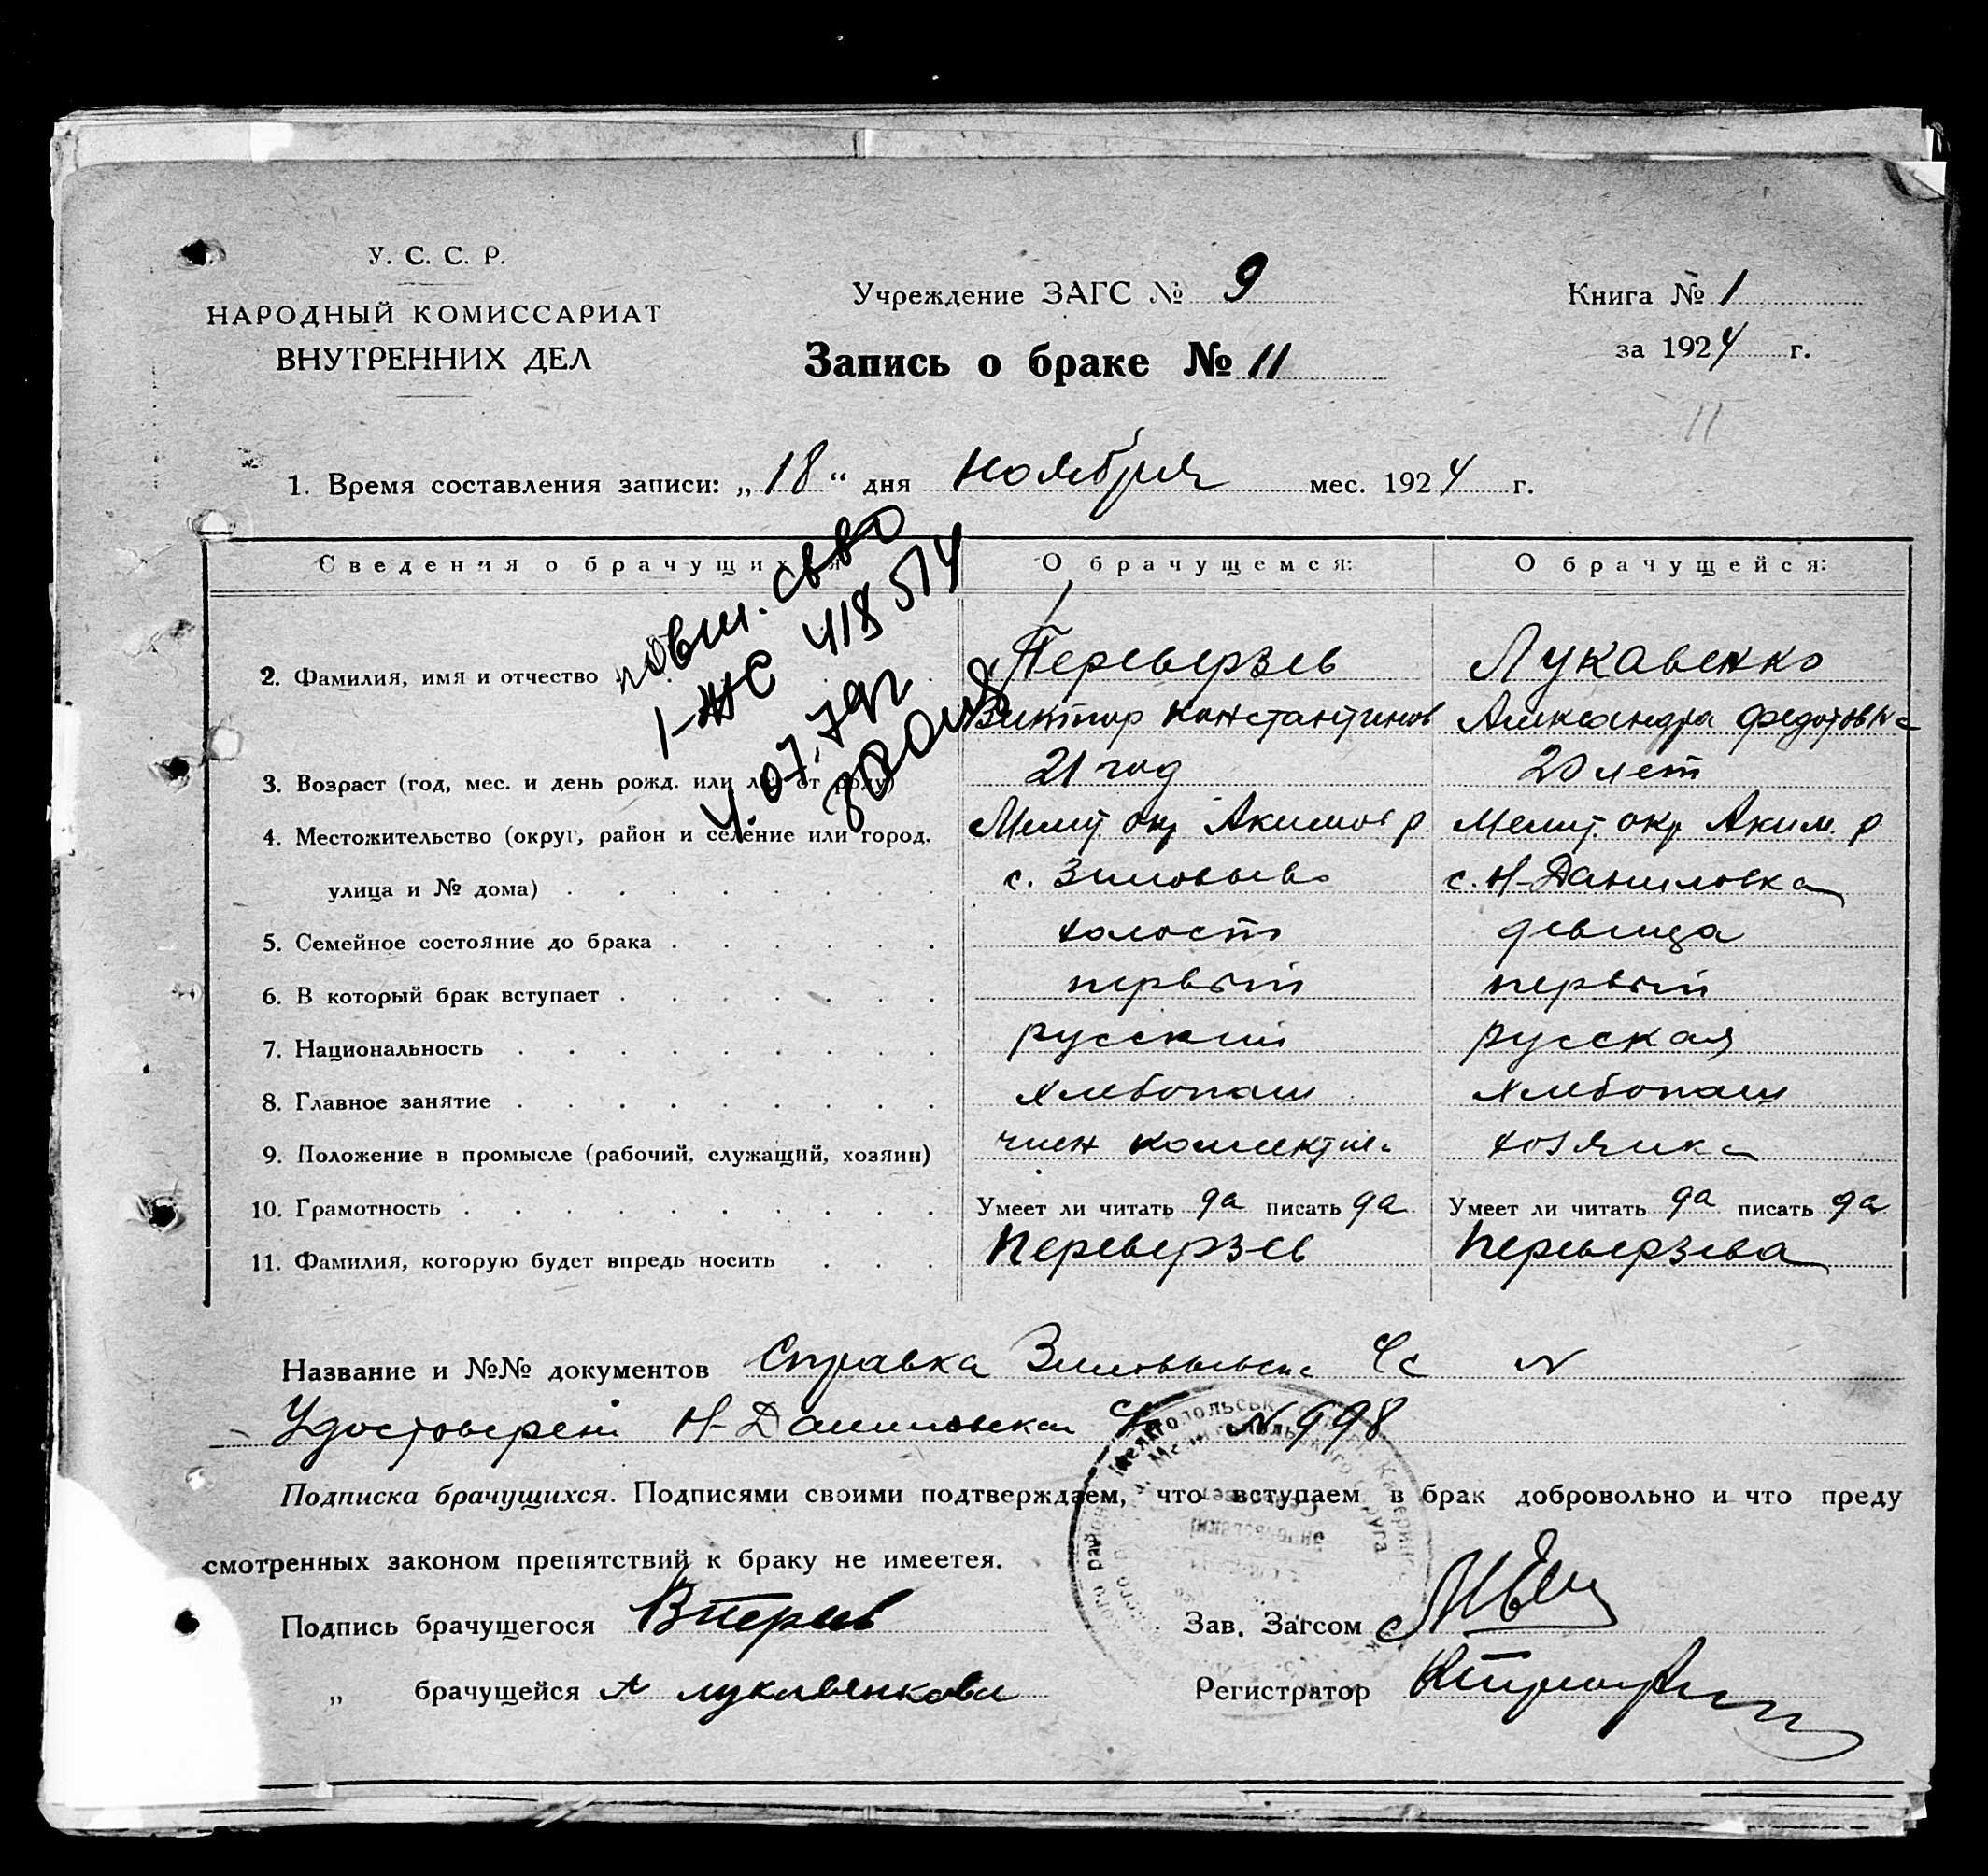 У. С. С. Р.
НАРОДНЫЙ КОМИССАРИАТ
ВНУТРЕННИХ ДЕЛ
Учреждение ЗАГС № 9
Запись о браке № 11
Книга № 1
за 1924 г.
11
1. Время составления записи: „18“ дня ноября мес. 1924 г.
Сведения о брачущихся
О брачущемся:
О брачущейся:
повт. св-во
I-ЖС 418514
4.07.79г
2. Фамилия, имя и отчество
Переверзев
Виктор Константинов
Лукавенко
Александра Федотовна
3. Возраст (год, мес. и день рожд. или лет от роду)
21 год
20 лет
4. Местожительство (округ, район и селение или город,
улица и № дома)
Мелит. окр Акимов р
с. Зиновьево
Мелит. окр Аким. р
с. Н-Даниловка
5. Семейное состояние до брака
холост
девица
6. В который брак вступает
первый
первый
7. Национальность
русский
русская
8. Главное занятие
хлебопаш
хлебопаш
9. Положение в промысле (рабочий, служащий, хозяин)
член
хозяйка
10. Грамотность
Умеет ли читать да писать да
Умеет ли читать да писать да
11. Фамилия, которую будет впредь носить
Переверзев
Переверзева
Название и №№ документов Справка
Н-Даниловска № 998
Подписка брачущихся. Подписями своими подтверждаем, что вступаем в брак добровольно и что преду
смотренных законом препятствий к браку не имеетея.
Подпись брачущегося
Зав. Загсом
„ брачущейся А лукавенкова
Регистратор